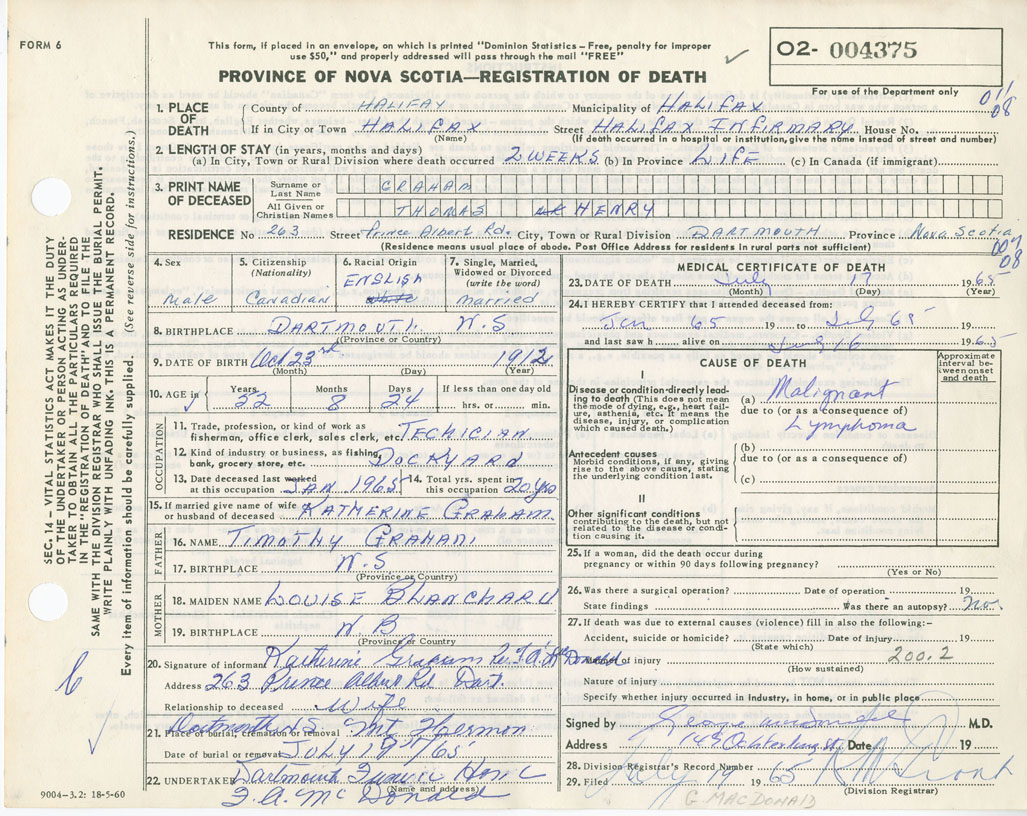 FORM 6
This form, if placed in an envelope, on which is printed "Dominion Statistics – Free, penalty for improper
use $50," and properly addressed will pass through the mail "FREE"
O2- 004375
PROVINCE OF NOVA SCOTIA—REGISTRATION OF DEATH
For use of the Department only
1. PLACE OF DEATH
County of HALIFAX Municipality of HALIFAX
011
08
If in City or Town HALIFAX Street HALIFAX INFIRMARY House No.
(Name) (If death occurred in a hospital or institution, give the name instead of street and number)
2. LENGTH OF STAY (in years, months and days)
(a) In City, Town or Rural Division where death occurred 2 WEEKS (b) In Province LIFE (c) In Canada (if immigrant)
3. PRINT NAME OF DECEASED
Surname or Last Name GRAHAM
All Given or Christian Names THOMAS HENRY
RESIDENCE No 263 Street Prince Albert Rd. City, Town or Rural Division DARTMOUTH Province Nova Scotia
(Residence means usual place of abode. Post Office Address for residents in rural parts not sufficient)
007
08
4. Sex
Male
5. Citizenship
(Nationality)
Canadian
6. Racial Origin
ENGLISH
white
7. Single, Married,
Widowed or Divorced
(write the word)
Married
8. BIRTHPLACE DARTMOUTH N.S
(Province or Country)
9. DATE OF BIRTH Oct 23rd 1912
(Month) (Day) (Year)
10. AGE in
Years 52
Months 8
Days 24
If less than one day old
hrs. or min.
OCCUPATION
11. Trade, profession, or kind of work as
fisherman, office clerk, sales clerk, etc. TECHICIAN
12. Kind of industry or business, as fishing,
bank, grocery store, etc. DOCKYARD
13. Date deceased last worked
at this occupation JAN 1965
14. Total yrs. spent in
this occupation 20 yrs
15. If married give name of wife
or husband of deceased KATHERINE GRAHAM
FATHER
16. NAME TIMOTHY GRAHAM
17. BIRTHPLACE N.S
(Province or Country)
MOTHER
18. MAIDEN NAME LOUISE BLANCHARD
19. BIRTHPLACE N B
(Province or Country)
20. Signature of informant Katherine Graham Per F.A. McDonald
Address 263 Prince Albert Rd Dart.
Relationship to deceased Wife
Dartmouth NS Mt Hermon
21. Place of burial, cremation or removal
Date of burial or removal JULY 19th/65
22. UNDERTAKER Dartmouth Funeral Home
(Name and address)
F.A. McDonald
MEDICAL CERTIFICATE OF DEATH
23. DATE OF DEATH July 17 1965
(Month) (Day) (Year)
24. I HEREBY CERTIFY that I attended deceased from:
Jan 65 19 to July 65 19
and last saw h alive on July 16 1965
CAUSE OF DEATH
Approximate interval between onset and death
I
Disease or condition directly leading to death (This does not mean the mode of dying, e.g., heart failure, asthenia, etc. It means the disease, injury, or complication which caused death.)
(a) Malignant
due to (or as a consequence of)
Lymphoma
Antecedent causes
Morbid conditions, if any, giving rise to the above cause, stating the underlying condition last.
(b)
due to (or as a consequence of)
(c)
II
Other significant conditions
contributing to the death, but not related to the disease or condition causing it.
25. If a woman, did the death occur during
pregnancy or within 90 days following pregnancy?
(Yes or No)
26. Was there a surgical operation? Date of operation 19
State findings Was there an autopsy? No.
27. If death was due to external causes (violence) fill in also the following:-
Accident, suicide or homicide? Date of injury 19
(State which)
Manner of injury 200.2
(How sustained)
Nature of injury
Specify whether injury occurred in industry, in home, or in public place
Signed by George M.D.
Address Date 19
28. Division Registrar's Record Number
29. Filed July 19 1965
(Division Registrar)
G MACDONALD
SEC. 14 – VITAL STATISTICS ACT MAKES IT THE DUTY
OF THE UNDERTAKER OR PERSON ACTING AS UNDER-
TAKER TO OBTAIN ALL THE PARTICULARS REQUIRED
IN THE "REGISTRATION OF DEATH" AND TO FILE THE
SAME WITH THE DIVISION REGISTRAR WHO SHALL ISSUE THE BURIAL PERMIT.
WRITE PLAINLY WITH UNFADING INK. THIS IS A PERMANENT RECORD.
Every item of information should be carefully supplied. (See reverse side for instructions.)
9004-3.2: 18-5-60